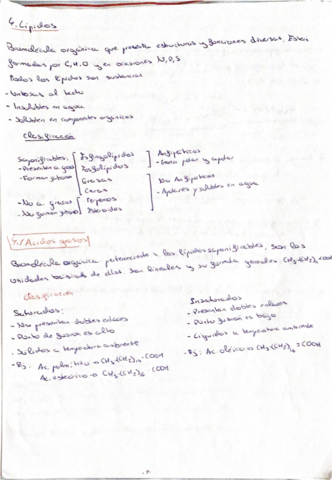 4. Lípidos
Biomolécula orgánica que presenta estructuras y funciones diversas. Están
formadas por C, H, O y en ocasiones N, P, S
Todos los lípidos son sustancias
- Untosas al tacto
- Insolubles en agua
- Solubles en compuestos orgánicos
Clasificación
Saponificables: Esfingolípidos Anfipáticos
- Presentan a. graso Fosfolípidos - Zona polar y apolar
- Forman jabones Grasas No Anfipáticos
Ceras - Apolares y solubles en agua
- No a. grasos Terpenos
- No forman jabones Esteroides
4.1 Ácidos grasos
Biomolécula orgánica perteneciente a los lípidos saponificables, son las
unidades básicas de ellos. Son lineales y su fórmula general: CH3-(CH2)n-COOH
Clasificación
Saturados:
- No presentan dobles enlaces
- Punto de fusión es alto
- Sólidos a temperatura ambiente
- Ej: Ac. palmítico → CH3-(CH2)14-COOH
Ac. esteárico → CH3-(CH2)16 COOH
Insaturados
- Presentan dobles enlaces
- Punto fusión es bajo
- Líquidos a temperatura ambiente
- Ej: Ac. oleico → CH3-(CH2)